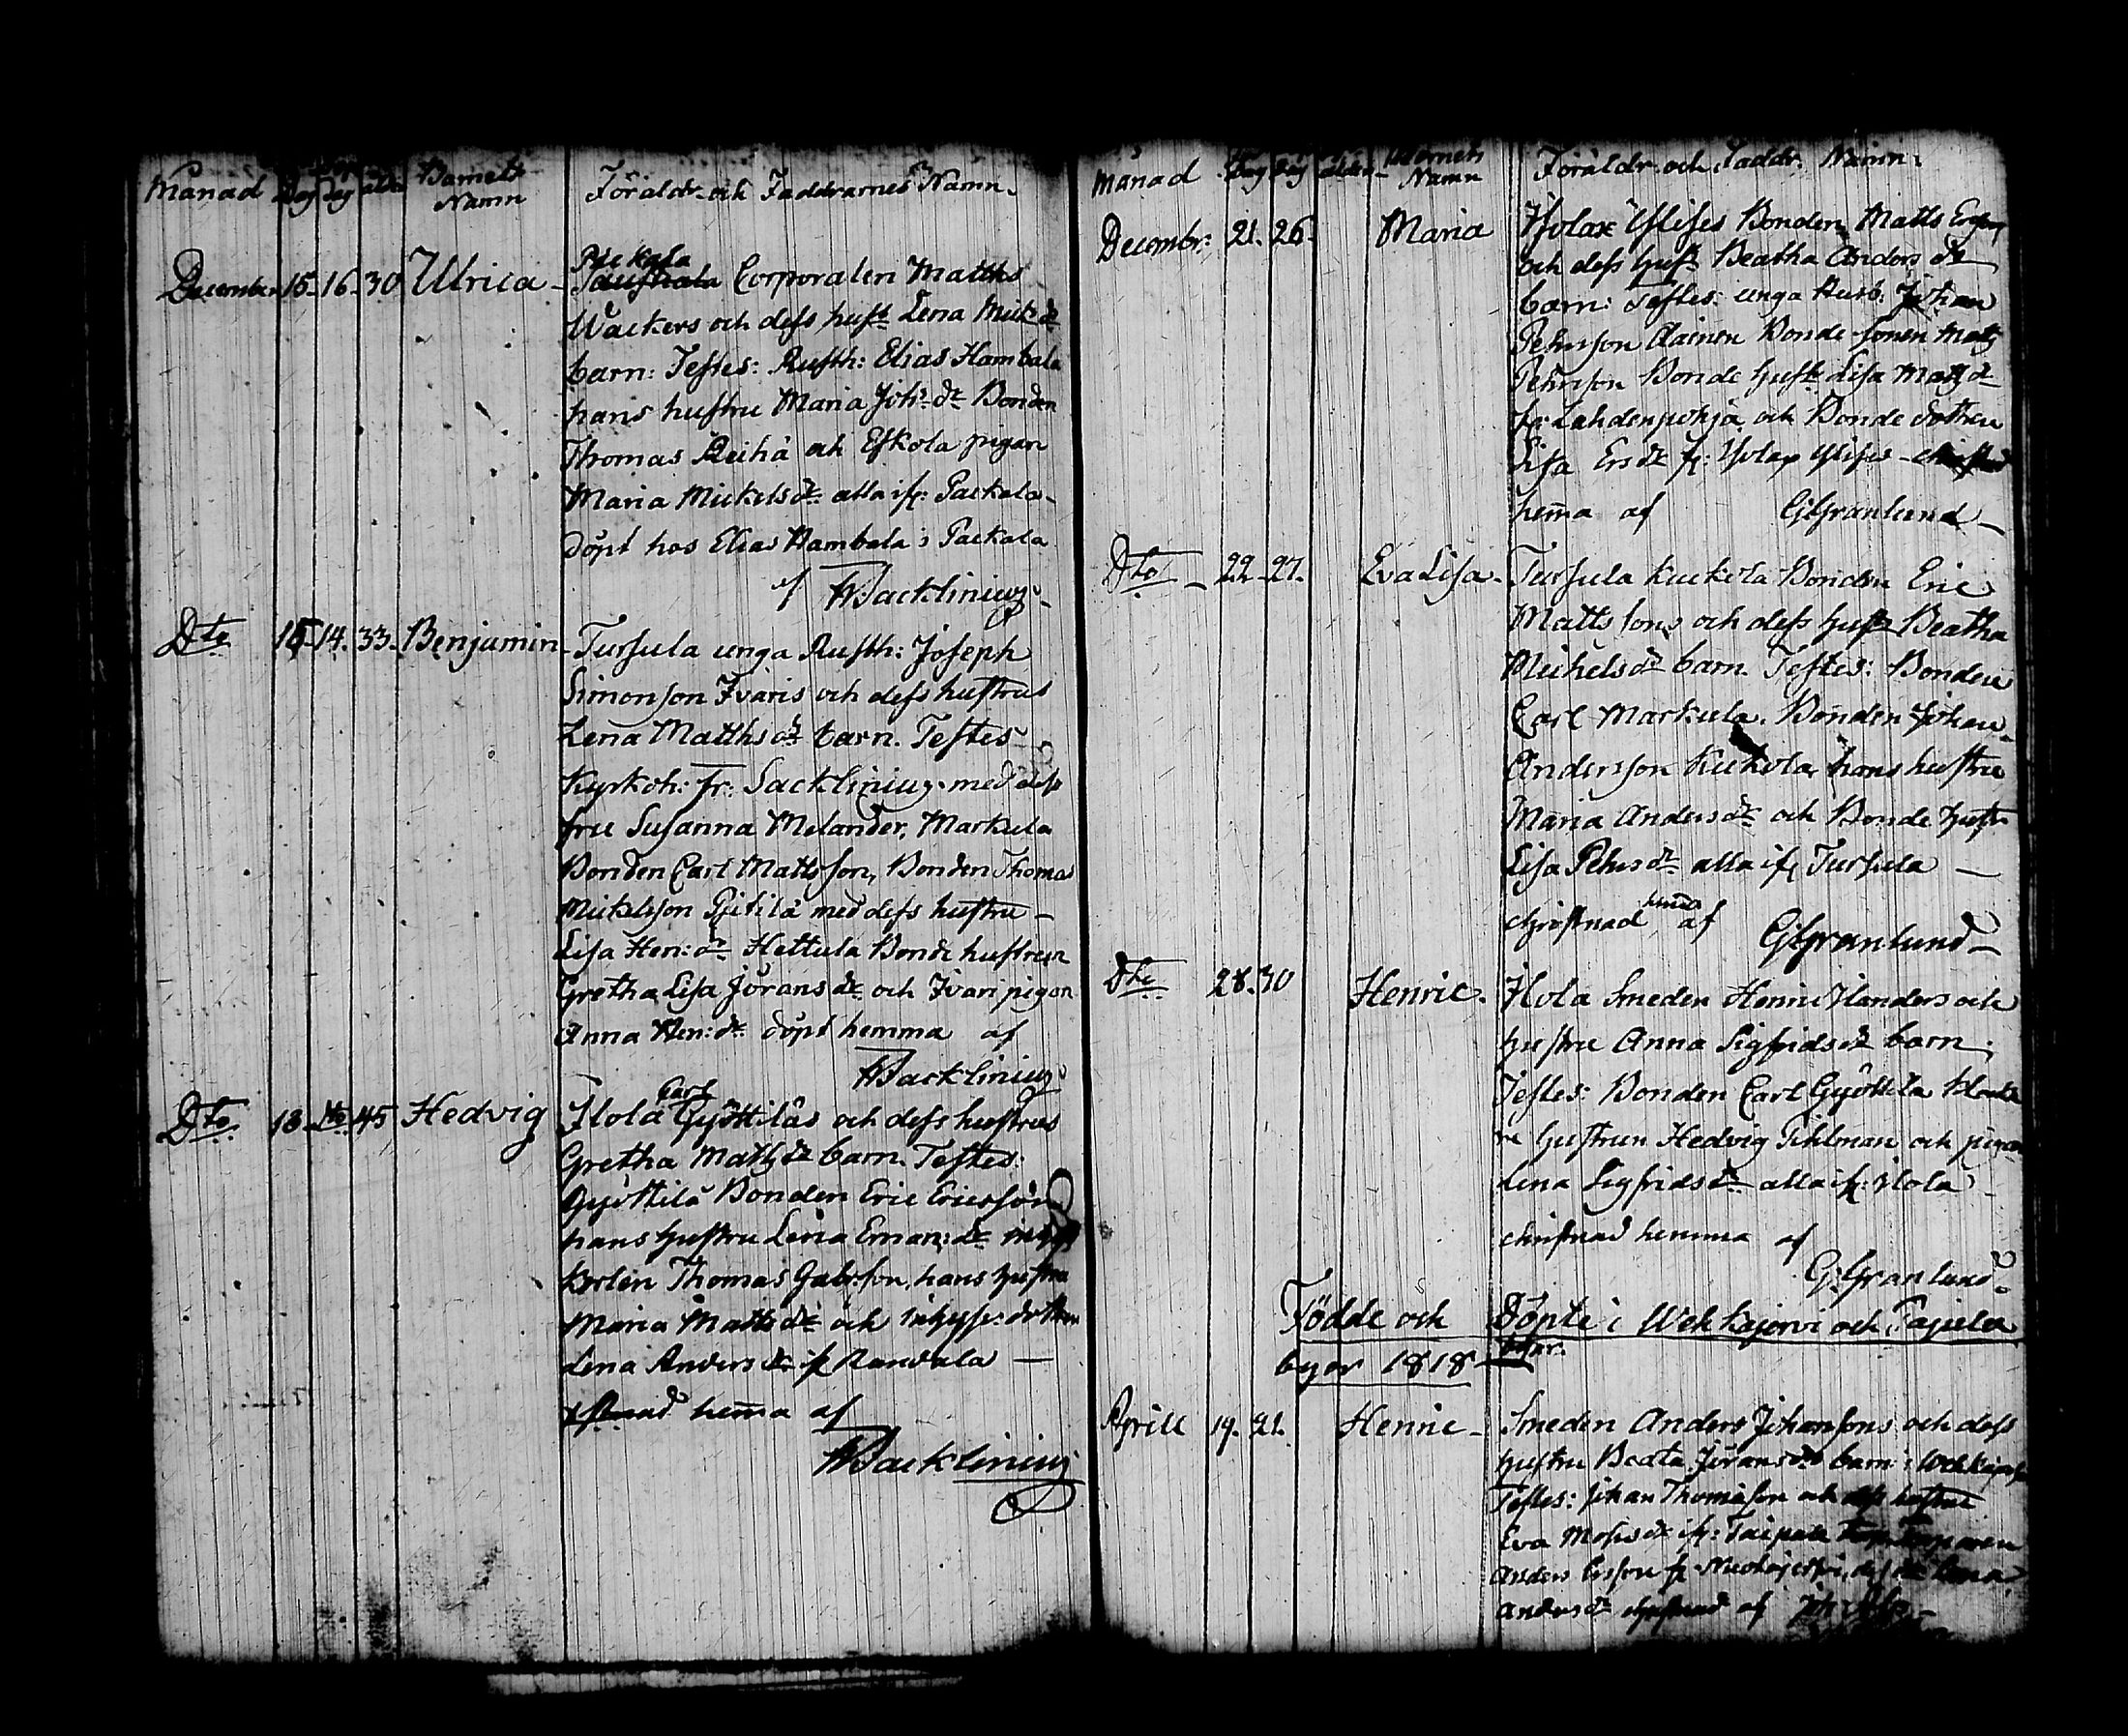 Månad Dag Dag ald: Barnets Namn Föräldr. och Faddrarnes Namn.
December 15. 16. 30 Ulrica - Packala
Corporalen Matths
Wackers och dess hust Lena Mick dr
barn: Testes: Rusth: Elias Hambala
hans hustru Maria Joh: dr Bonden
Thomas Reihä och Eskola pigan
Maria Mickels dr alla ifr: Packala
döpt hos Elias Hambala i Packala
af Wacklinius
Dto 14. 33. Benjamin - Tursula unga Rusth: Joseph
Simonson Ivaris och dess hustrus
Lena Matths dr barn. Testes
Kyrkoh: Fr: Sacklinius med dess
fru Susanna Melander, Markula
Bonden Carl Mattsson, Bonden Thomas
Mickelsson Pietilä med dess hustru -
Lisa Hen: dr Hettula Bonde hustrun
Gretha Lisa Jörans dr och Ivari pigan
Anna Hen: dr döpt hemma af
Wacklinius
Dto 13. Dto 45 Hedvig Ilola Carl Gyöttiläs och dess hustrus
Gretha Matts dr barn. Testes:
Gyöttilä Bonden Eric Ericsson
hans hustru Lena Eman: dr
Thomas Gabr:son, hans hustru
Maria Matts dr och inhyss: dottren
Lena Anders dr ifr Randala —
hema af
Wacklinius
Månad Dag Dag ålder Barnets Namn Föräldr. och Faddr. Namn.
Decembr: 21. 26. Maria Bonden Matts
och dess hust Beatha Anders dr
barn: Testes: unga Husb: Johan
Pehrsson Bonde sonen Matts
Pehrsson Bonde hust Lisa Matts dr
fr: Lahdenpohja och Bonde dottren
Lisa Ers dr fr:
hema af G:Granlund
Dto 22. 27. Eva Lisa - Tursula Kuckola Bonden Eric
Mattssons och dess hust Beatha
Michels dr barn. Testes: Bonden
Carl Markula. Bonden Johan
Andersson Kuckola hans hustru
Maria Anders dr och Bonde hustr
Lisa Pehrs dr alla ifr Tursula —
christnad hema af G:Granlund
Dto 28. 30 Henric. Ilola Smeden Henric Ilanders och
hustru Anna Sigfrids dr barn;
Testes: Bonden Carl Gyöttilä
hustrun Hedvig Pihlman och pigan
Lena Sigfrids dr alla ifr: Ilola
christnad hemma af
G:Granlund
Födde och Döpte i Wehkajervi och Pajula
byar 1818
Aprill 19. 21. Henric - Smeden Anders Johanssons och dess
hustru Beata Jörans dr barn i
Testes: Johan Thomasson och dess hustru
Eva Moses dr ifr:
Anders Ersson fr
Anders dr christnad af